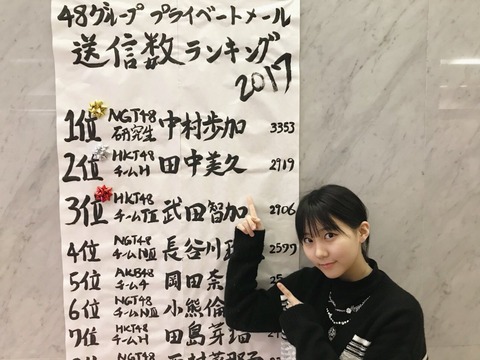 48グループ プライベートメール
送信数ランキング
2017
1位 NGT48 研究生 中村歩加 3353
2位 HKT48 チームH 田中美久 2919
3位 HKT48 チームTⅡ 武田智加 2906
4位 NGT48 チームNⅢ 長谷川 2577
5位 AKB48 チーム4 岡田奈
6位 NGT48 チームNⅢ 小熊倫
7位 HKT48 チームH 田島芽瑠